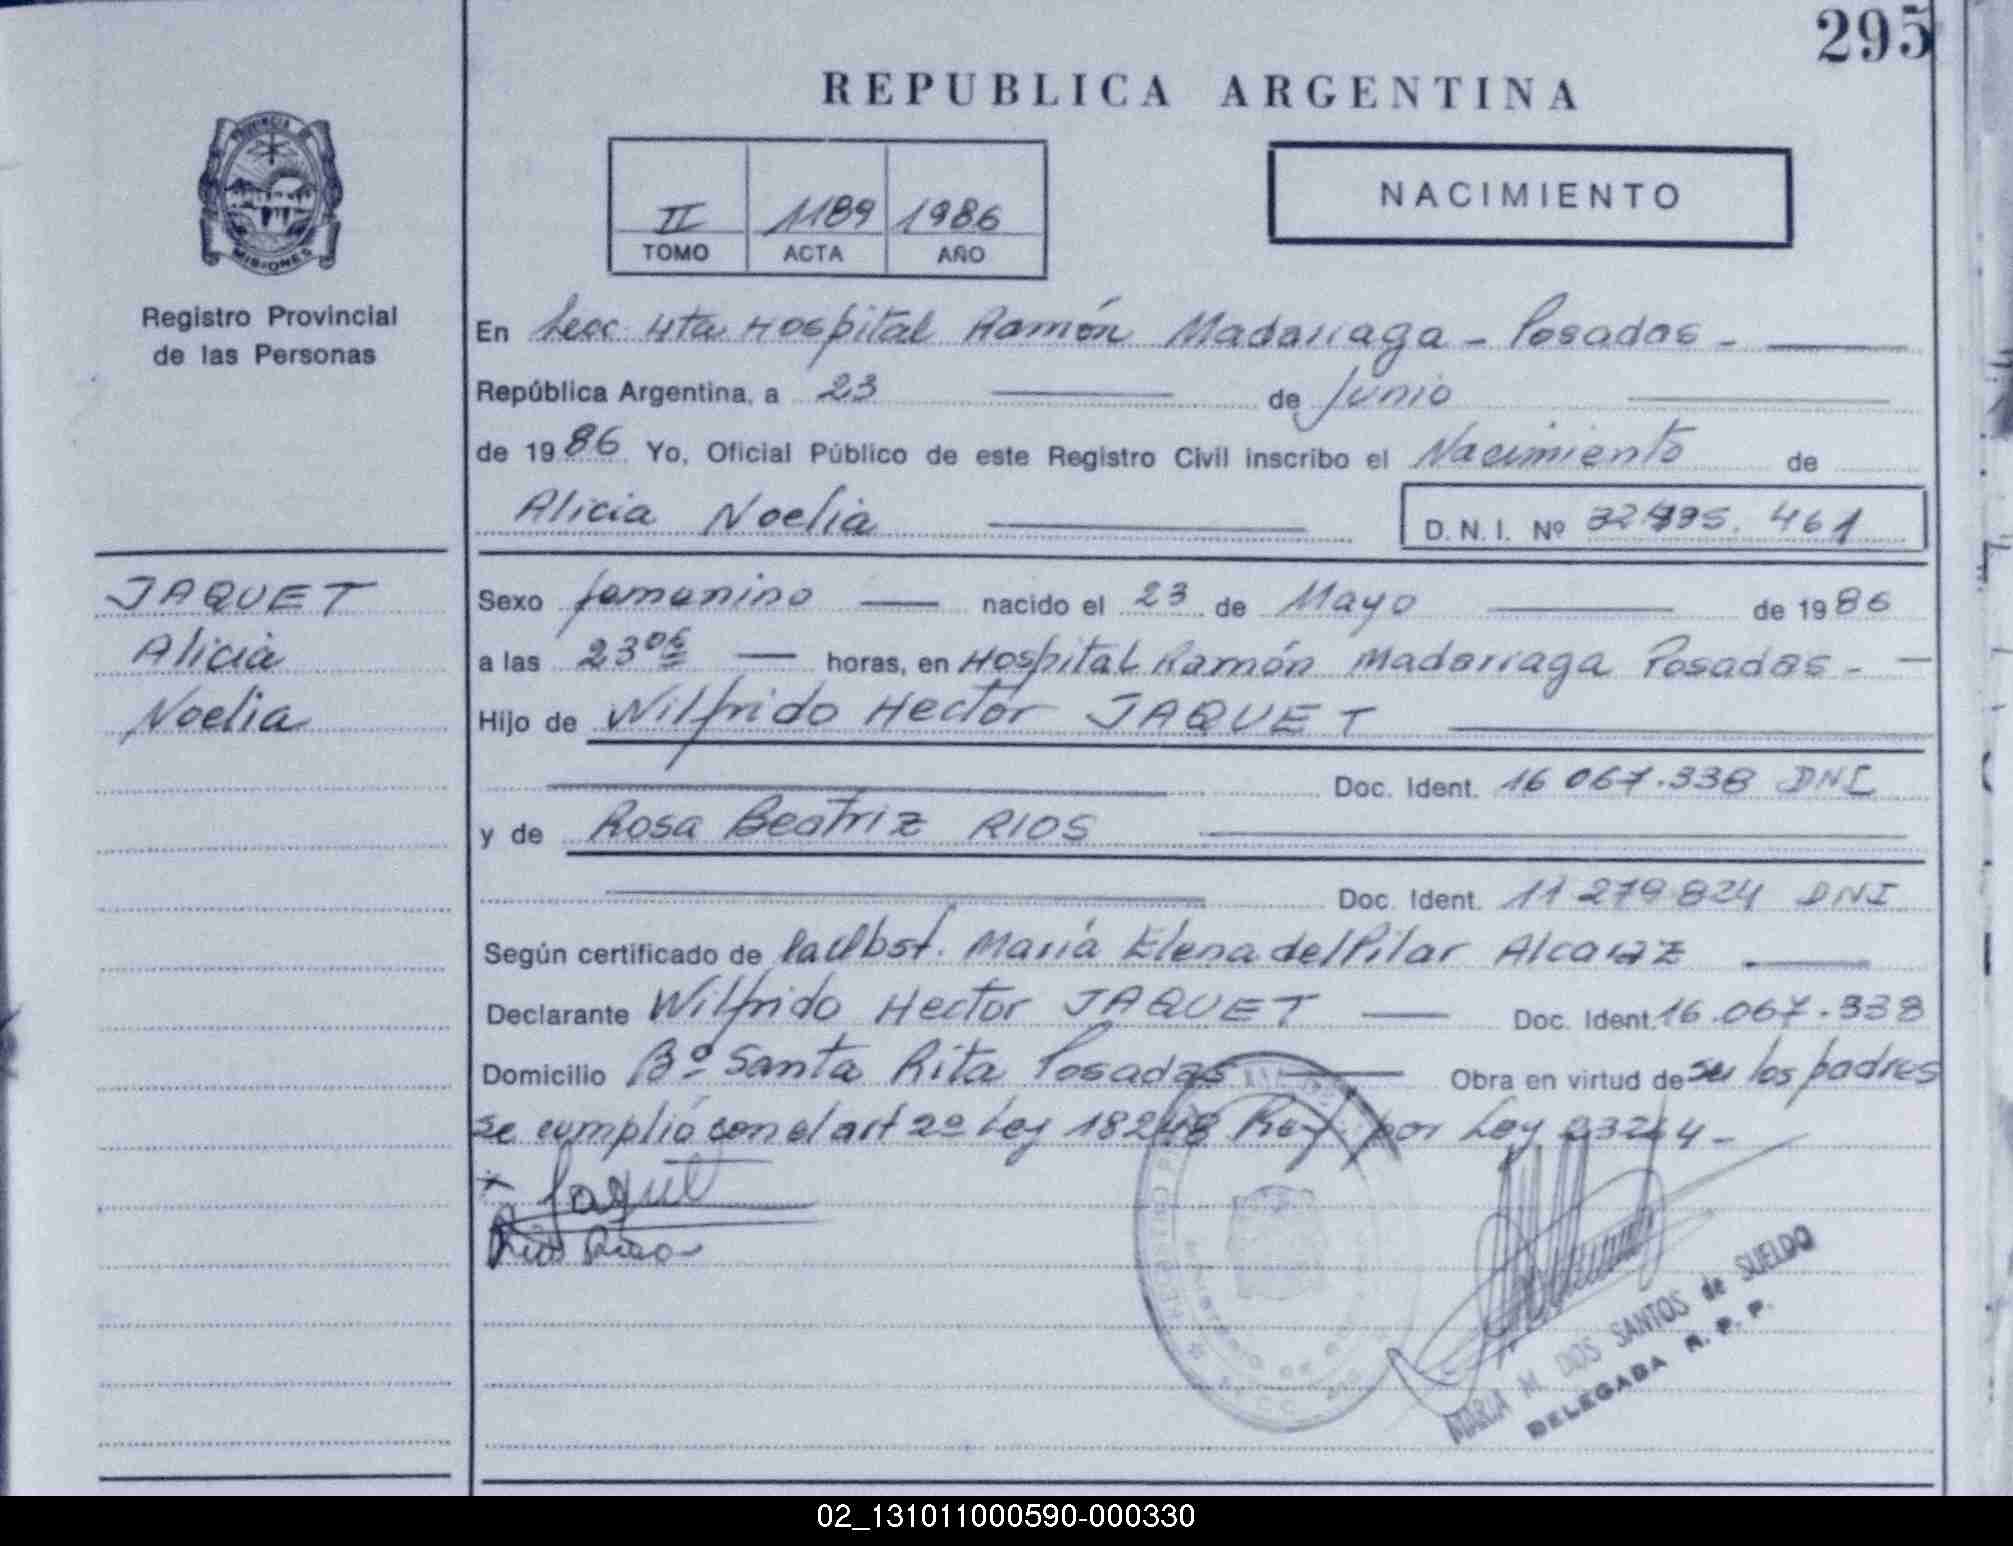 295
REPUBLICA ARGENTINA
PROVINCIA DE
MISIONES
Registro Provincial
de las Personas
II 1189 1986
TOMO ACTA AÑO
NACIMIENTO
En Secc 4ta Hospital Ramón Madariaga - Posadas -
República Argentina, a 23 de Junio
de 1986 Yo, Oficial Público de este Registro Civil inscribo el Nacimiento de
Alicia Noelia
D. N. I. Nº 461
JAQUET
Alicia
Noelia
Sexo femenino nacido el 23 de Mayo de 1986
a las 23 05 horas, en Hospital Ramón Madariaga Posadas -
Hijo de Wilfrido Hector JAQUET
Doc. Ident. 16 067.338 DNI
y de Rosa Beatriz RIOS
Doc. Ident. 11 279 824 DNI
Según certificado de María Elena del Pilar Alcaraz
Declarante Wilfrido Hector JAQUET Doc. Ident. 16.067.338
Domicilio Bº Santa Rita Posadas Obra en virtud de ser los padres
se cumplió con el art 2º Ley 18248 por Ley 23264 -
Jaquet
MARIA M. DOS SANTOS de SUELDO
DELEGADA R. P. P.
02_131011000590-000330